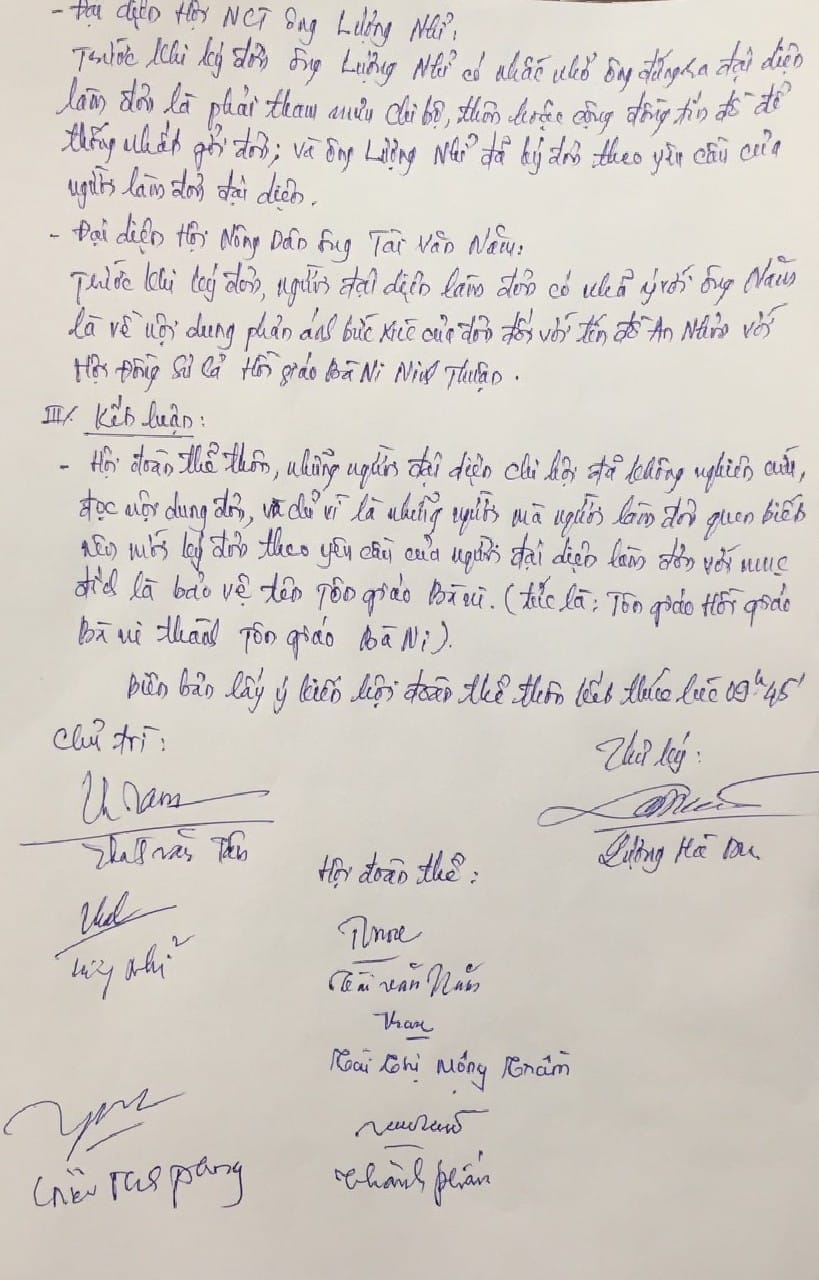 - Đại diện Hội NCT ông Lượng Nhỉ:
Trước khi ký đơn ông Lượng Nhỉ có nhắc nhở ông đứng ra đại diện
làm đơn là phải tham mưu chi bộ, thôn hoặc cộng đồng tín đồ để
thống nhất gởi đơn; và ông Lượng Nhỉ đã ký đơn theo yêu cầu của
người làm đơn đại diện.
- Đại diện Hội Nông Dân ông Tài Văn Nấm:
Trước khi ký đơn, người đại diện làm đơn có nhã ý với ông Nấm
là về nội dung phản ánh bức xúc của đơn đối với tín đồ An Nhơn với
Hội Đồng Sư Cả Hồi giáo Bà Ni Ninh Thuận.
III/. Kết luận:
- Hội đoàn thể thôn, những người đại diện chi hội đã không nghiên cứu,
đọc nội dung đơn, và chỉ vì là những người mà người làm đơn quen biết
nên mới ký đơn theo yêu cầu của người đại diện làm đơn với mục
đích là bảo vệ tên Tôn giáo Bà ni. (tức là: Tôn giáo Hồi giáo
Bà ni thành Tôn giáo Bà Ni).
Biên bản lấy ý kiến hội đoàn thể thôn kết thúc lúc 09h 45'
Chủ trì: Thư ký:
văn Tân Lượng Hà Du
Hội đoàn thể:
Nhỉ
Tài văn Nấm
Tài Thị Mộng Trầm
Thành phấn